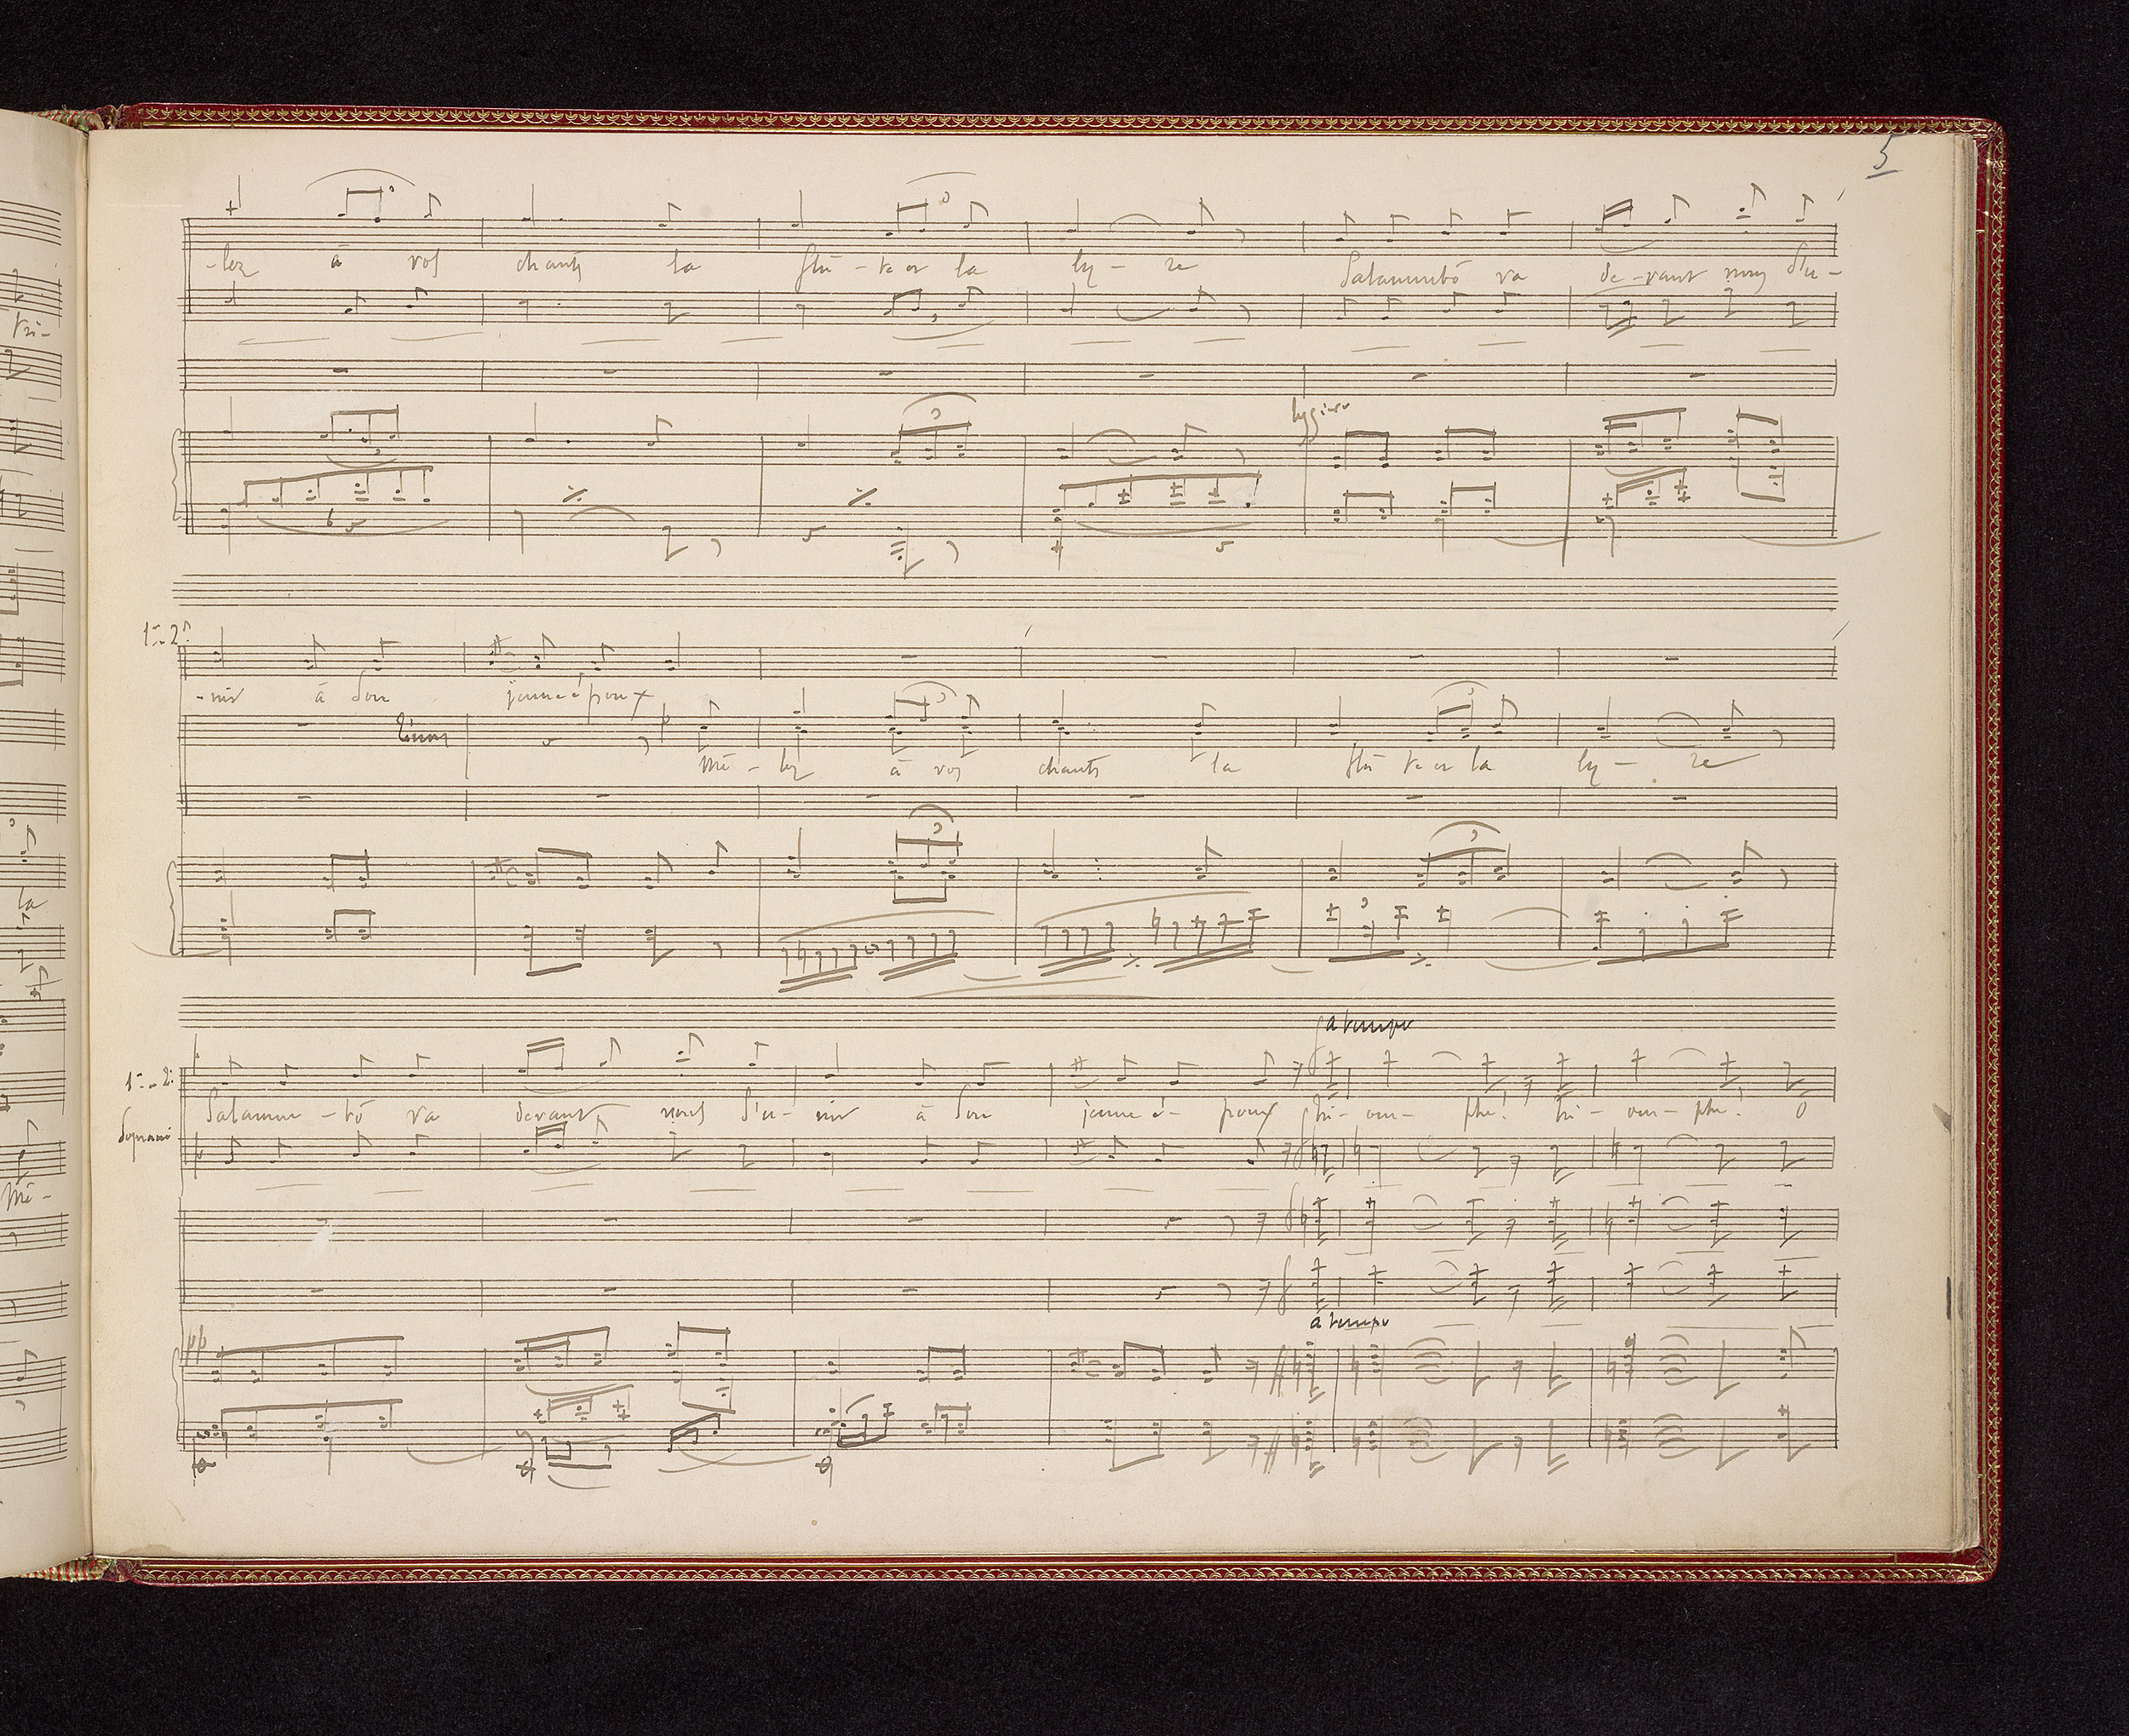 5
-lez à vos chants la flû - te et la ly - re Salammbô va de - vant nous s'u -
leggiero
3
6
1ers 2ds
- nir à son jeune époux
Ténors
Mê - lez à vos chants la flû te et la ly - re
3
a tempo
1ers 2ds
Soprani
Salamm - bô va devant nous s'u - nir à son jeune é - poux tri - om - phe! tri - om - phe! O
a tempo
tri -
la
Mê -